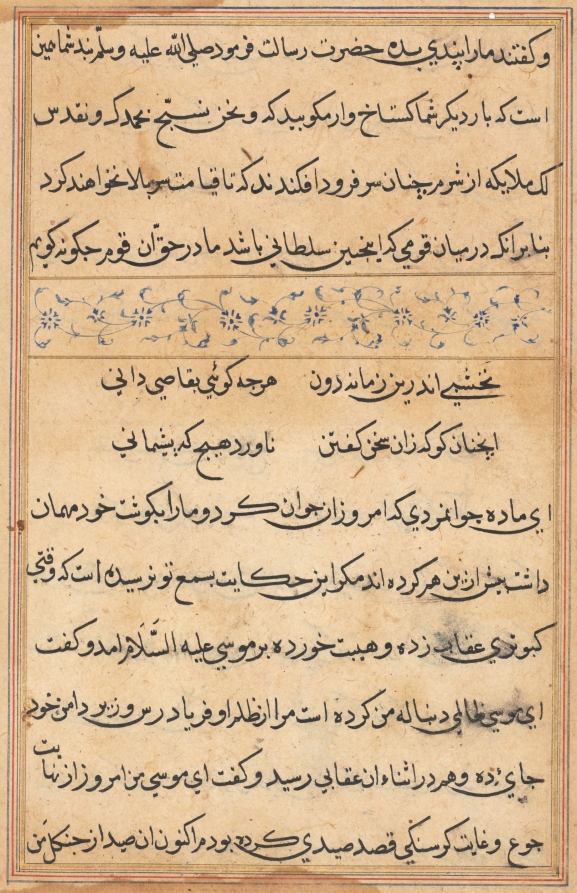 و کفتند مارا پندي بده حضرت رسالت فرمود صلي الله عليه وسلّم پند شما همين
است که بار ديکر شما کستاخ وار مکوييد که و نحن نسبّح بحمدک و نقدس
لک ملايکه از شرم چنان سر فرود افکندند که تا قيامت سر بالا نخواهند کرد
بنابرانکه در ميان قومي که اينچنين سلطاني باشد ما در حق ان قوم چکونه کويم
نخشبي اندرين زمانه دون هرچه کوئي بقاصي داني
انچنان کو که زان سخن کفتن ناورد هيچ که پشماني
اي ماده جوانمردي که امروز ان جوان کرد و مارا بکوشت خود مهمان
داشت پيش ازين هم کرده اند مکر اين حکايت بسمع تو نرسيده است که وقتي
کبوتري عقاب زده و هيبت خورده بر موسي عليه السَّلام امد و کفت
اي موسي ظالمي دنباله من کرده است مرا از ظلم او فرياد رس و زير دامن خود
جاي ده و هم در اثناء ان عقابي رسيد و کفت اي موسي من امروز از نهايت
جوع و غايت کرسنکي قصد صيدي کرده بودم اکنون ان صيد از جنکل من